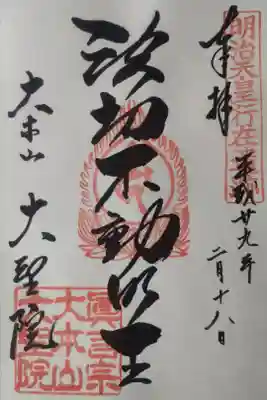 明治天皇行在所
奉拝
平成廿九年
二月十八日
波切不動明王
大本山 大聖院
眞言宗
大本山
大聖院